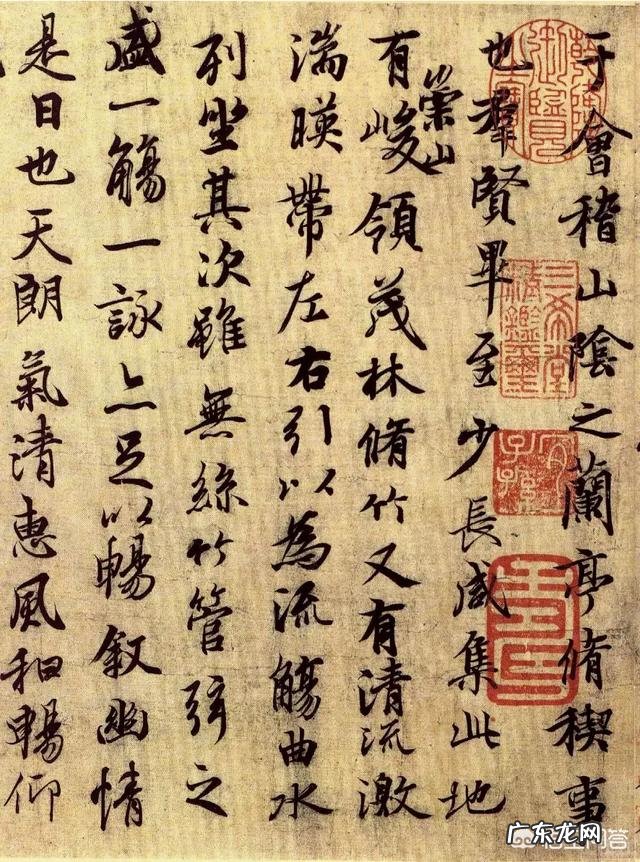 于會稽山陰之蘭亭脩稧事
也羣賢畢至少長咸集此地
有崇山峻領茂林脩竹又有清流激
湍暎帶左右引以為流觴曲水
列坐其次雖無絲竹管弦之
盛一觴一詠亦足以暢叙幽情
是日也天朗氣清惠風和暢仰
三希堂精鑑璽
宜子孫
广东龙网